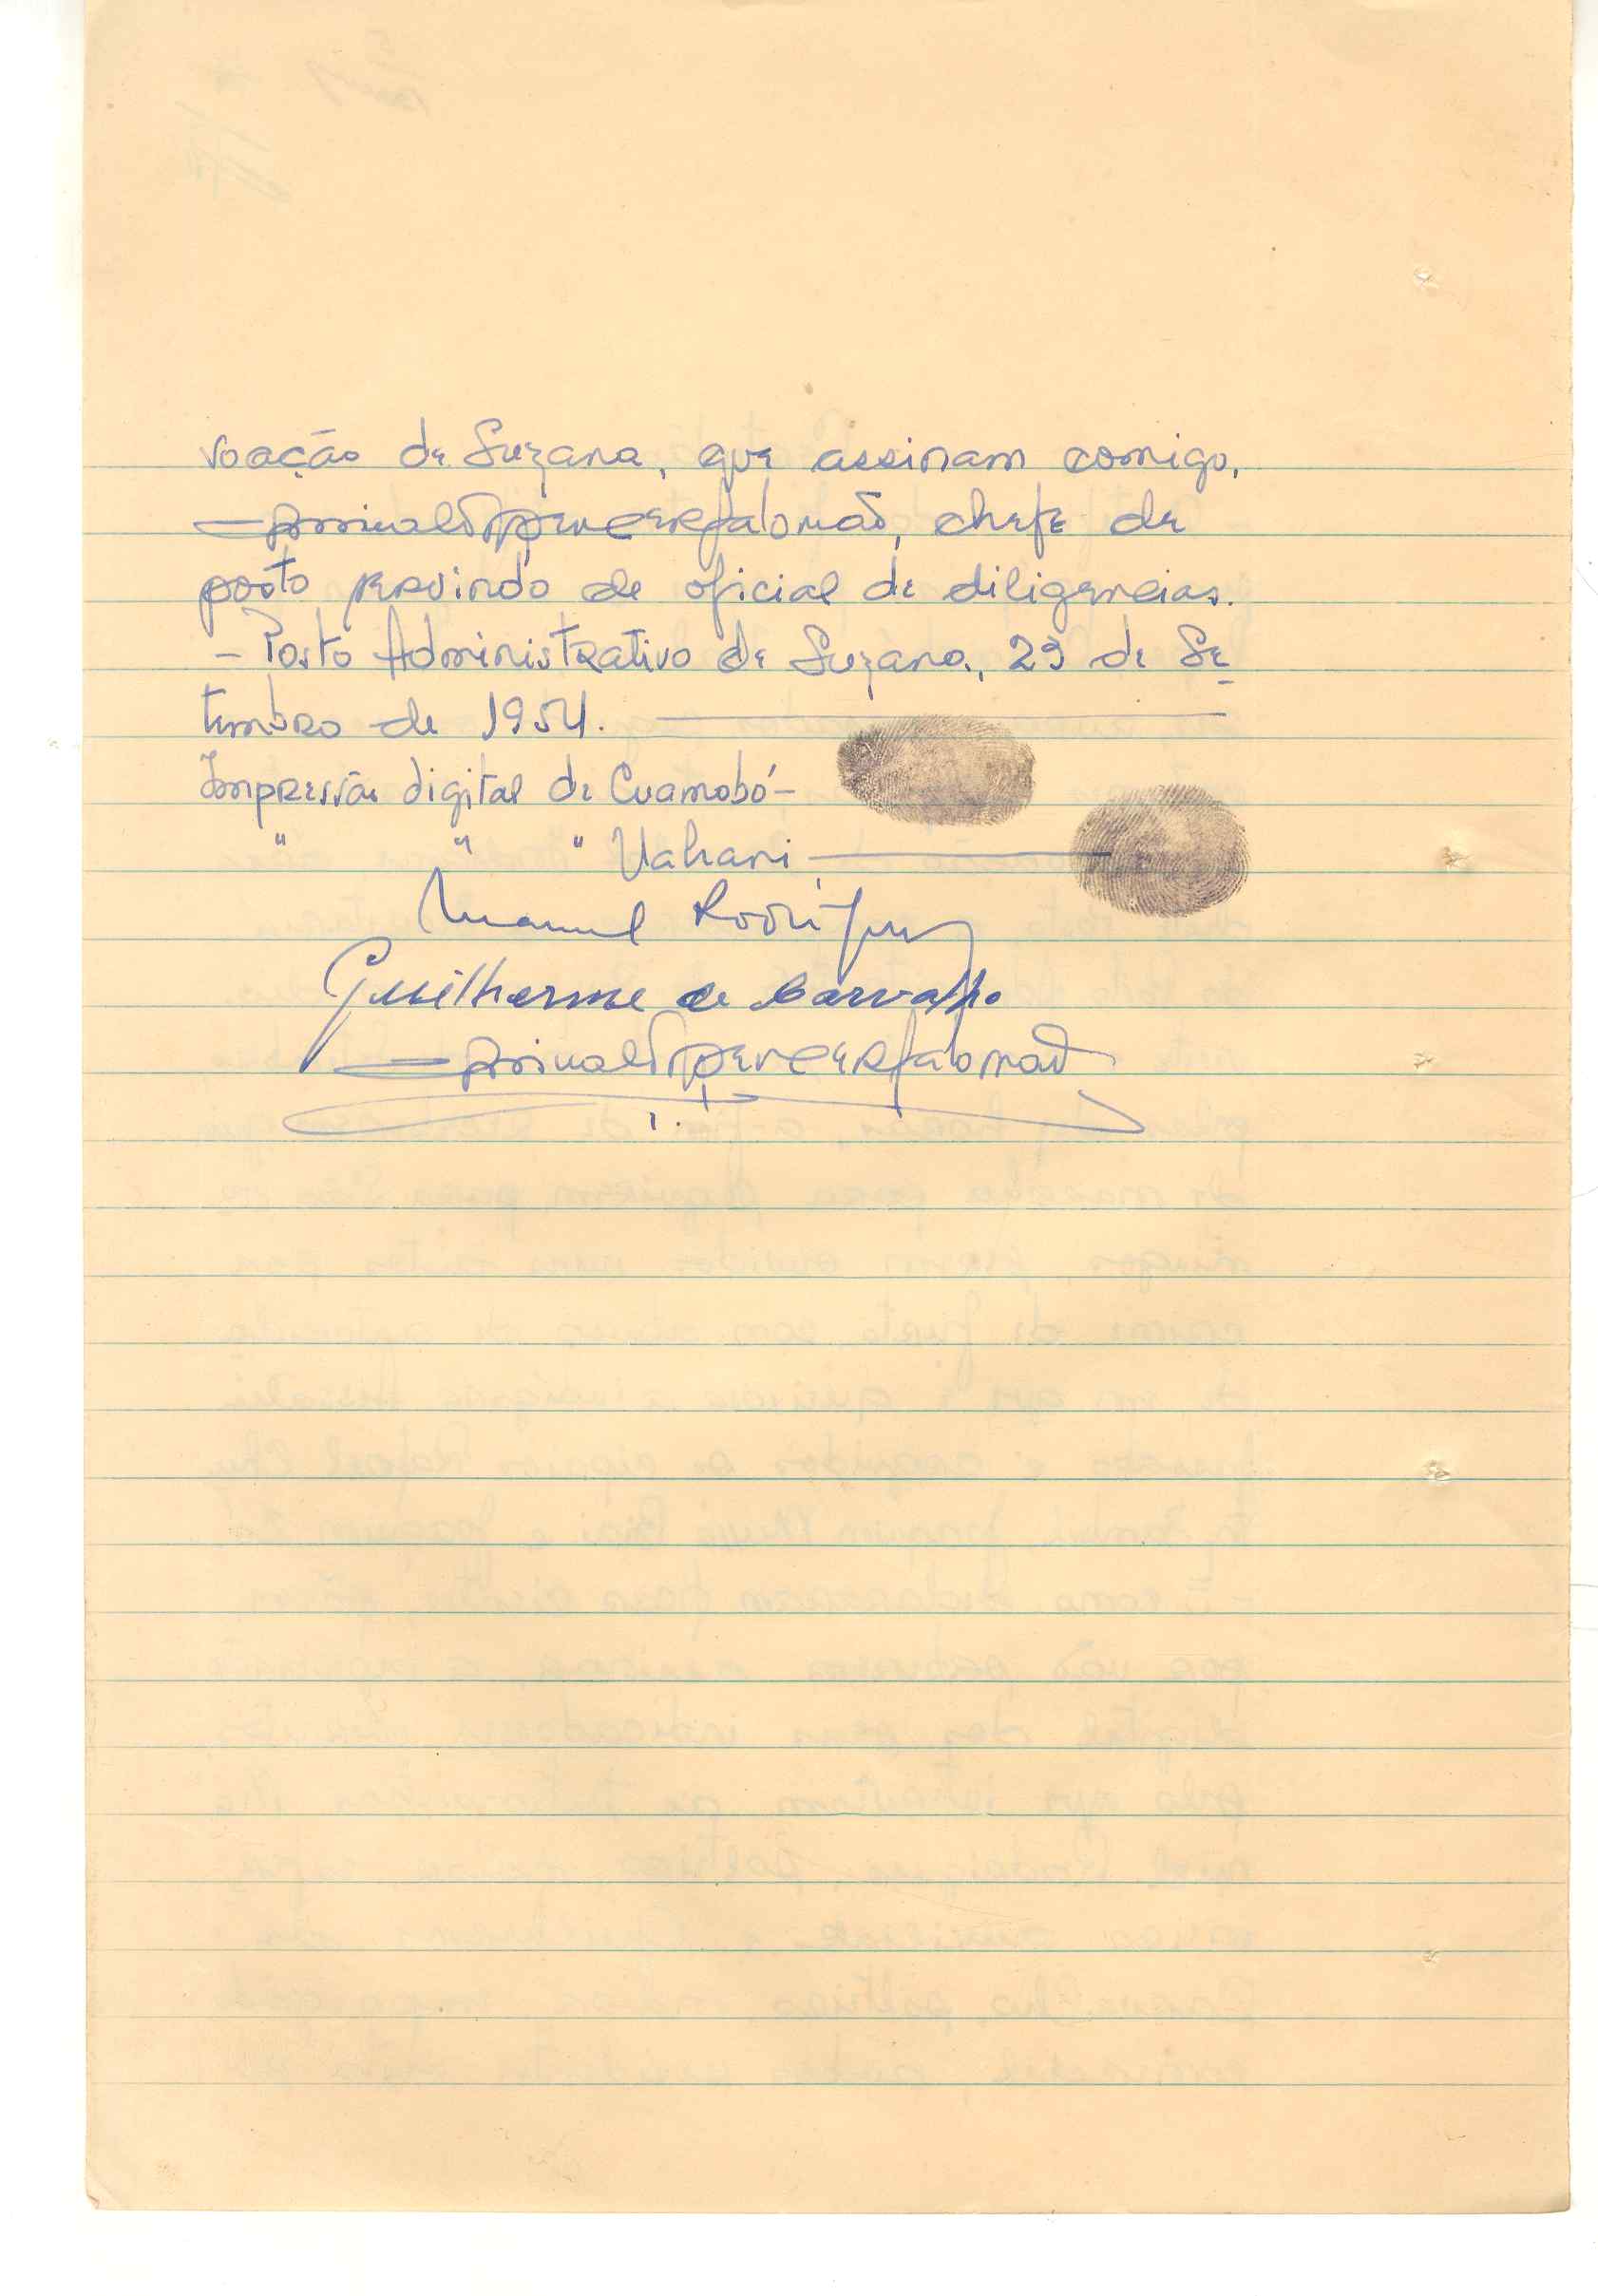 voação de Suzana, que assinam comigo,
Salomão, chefe de
posto servindo de oficial de diligencias.
- Posto Administrativo de Suzana, 29 de Se
tembro de 1954.
Impressão digital de Cuamobó-
" " " Uahani
Manuel Rodrigues
Guilherme de Carvalho
Salomão